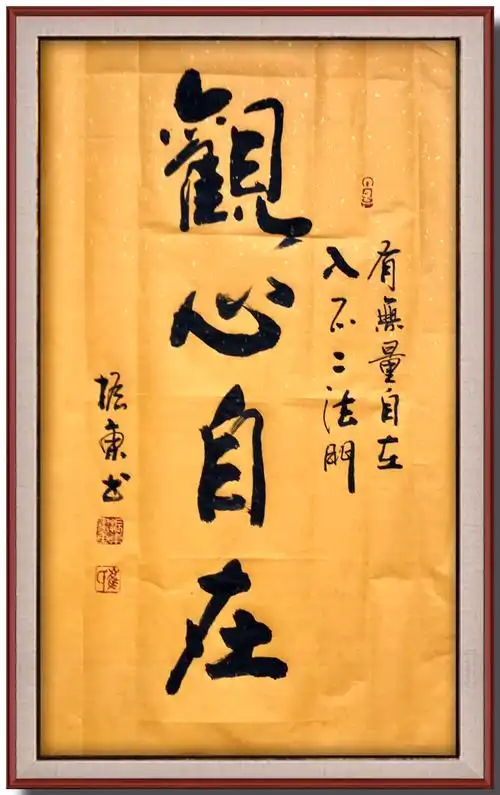 有無量自在
入不二法門
觀心自在
振東书